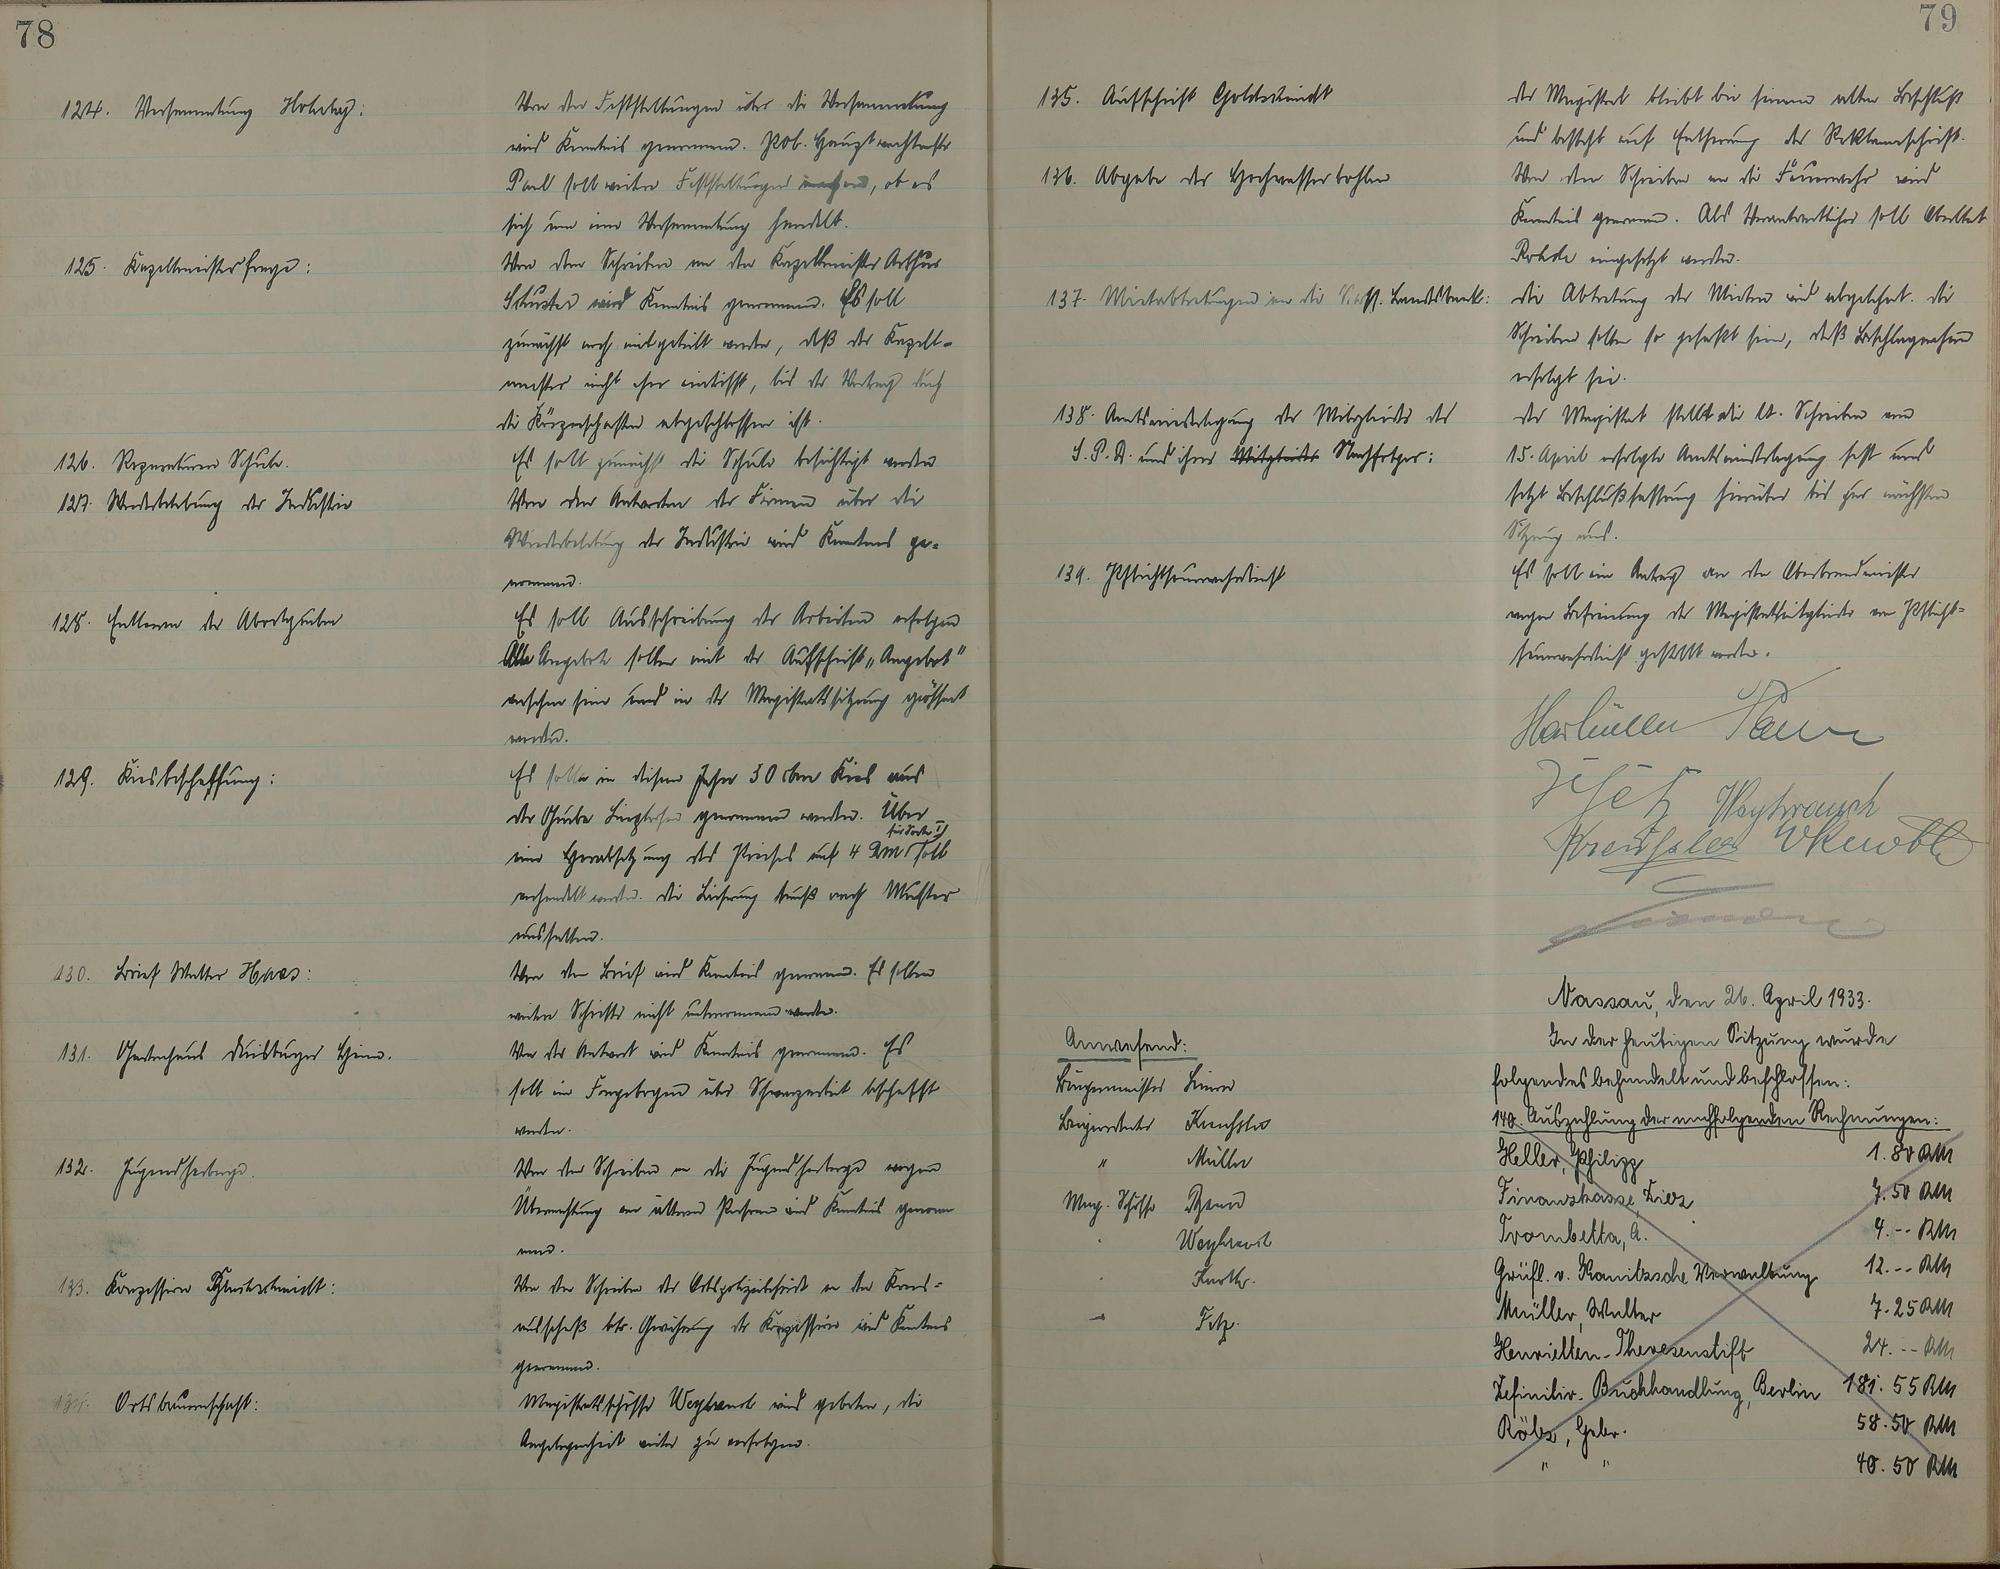 78
124. Versammlung Hohelay:
Von den Feststellungen über die Versammlung
wird Kenntnis genommen. Pol. Hauptwachtmstr
Paul soll weitere Feststellungen machen, ob es
sich um eine Versammlung handelt.
125. Kapellmeisterfrage:
Von dem Schreiben an den Kapellmeister Arthur
Schuster wird Kenntnis genommen. Es soll
zunächst noch mitgeteilt werden, daß der Kapell-
meister nicht eher eintrifft, bis der Vertrag durch
die Körperschaften abgeschlossen ist.
126. Reparaturen Schule.
Es soll zunächst die Schule besichtigt werden
127. Wiederbelebung der Industrie
Von den Antworten der Firmen über die
Wiederbelebung der Industrie wird Kenntnis ge-
nommen.
128. Entleeren der Abortgruben
Es soll Ausschreibung der Arbeiten erfolgen
Alle Angebote sollen mit der Aufschrift „Angebot"
versehen sein und in der Magistratssitzung geöffnet
werden.
129. Kiesbeschaffung:
Es sollen in diesem Jahr 30 cbm Kies aus
der Grube genommen werden. Über
eine Herabsetzung des Preises auf 4 RM für Sorte I soll
verhandelt werden. Die Lieferung muß nach Muster
ausfallen.
130. Brief Walter Haas:
Von dem Brief wird Kenntnis genommen. Es sollen
weitere Schritte nicht unternommen werden.
131. Gartenhaus Duisburger Heim.
Von der Antwort wird Kenntnis genommen. Es
soll ein Fragebogen über Schwarzarbeit beschafft
werden.
132. Jugendherberge.
Von dem Schreiben an die Jugendherberge wegen
Übernachtung von älteren Personen wird Kenntnis genom
men.
133. Konzession
Von dem Schreiben der Ortspolizeibehörde an den Kreis-
ausschuß betr. Gewährung der Konzession wird Kenntnis
genommen.
134. Ortsbauernschaft:
Magistratsschöffe Weyhrauch wird gebeten, die
Angelegenheit weiter zu verfolgen.
79
135. Aufschrift Goldschmidt
Der Magistrat bleibt bei seinem alten Beschluß
und besteht auf Entfernung der Reklameschrift.
136. Abgabe der Hochwasserbohlen
Von dem Schreiben an die Feuerwehr wird
Kenntnis genommen. Als Verantwortlicher soll
Rohde eingesetzt werden.
137. Mietabtretungen an die Nass. Landesbank:
Die Abtretung der Mieten wird abgelehnt. Die
Schreiben sollen so gefaßt sein, daß Beschlagnahme
erfolgt sei.
138. Amtsniederlegung der Mitglieder der
S.P.D. und ihrer Mitglieder Nachfolger:
Der Magistrat stellt die lt. Schreiben vom
15. April erfolgte Amtsniederlegung fest und
setzt Beschlußfassung hierüber bis zur nächsten
Sitzung aus.
139. Pflichtfeuerwehrdienst
Es soll ein Antrag an den Oberbrandmeister
wegen Befreiung der Magistratsmitglieder vom Pflicht-
feuerwehrdienst gestellt werden.
Weyhrauch
Nassau, den 26. April 1933.
In der heutigen Sitzung wurde
folgendes behandelt und beschlossen:
Anwesend:
Bürgermeister
Beigeordneter
" Müller
Mag. Schöffe
Weyhrauch
Fetz.
140. Auszahlung der nachfolgenden Rechnungen:
Heller, Philipp 1.80 RM
Finanzkasse, Diez 7.50 RM
Trombetta, A. 4.-- RM
Gräfl. v. Kanitzsche Verwaltung 12.-- RM
Müller, Walter 7.25 RM
Henrietten-Theresenstift 24.-- RM
Definitiv-Buchhandlung, Berlin 181.55 RM
Gebr. 58.50 RM
" " 40.50 RM